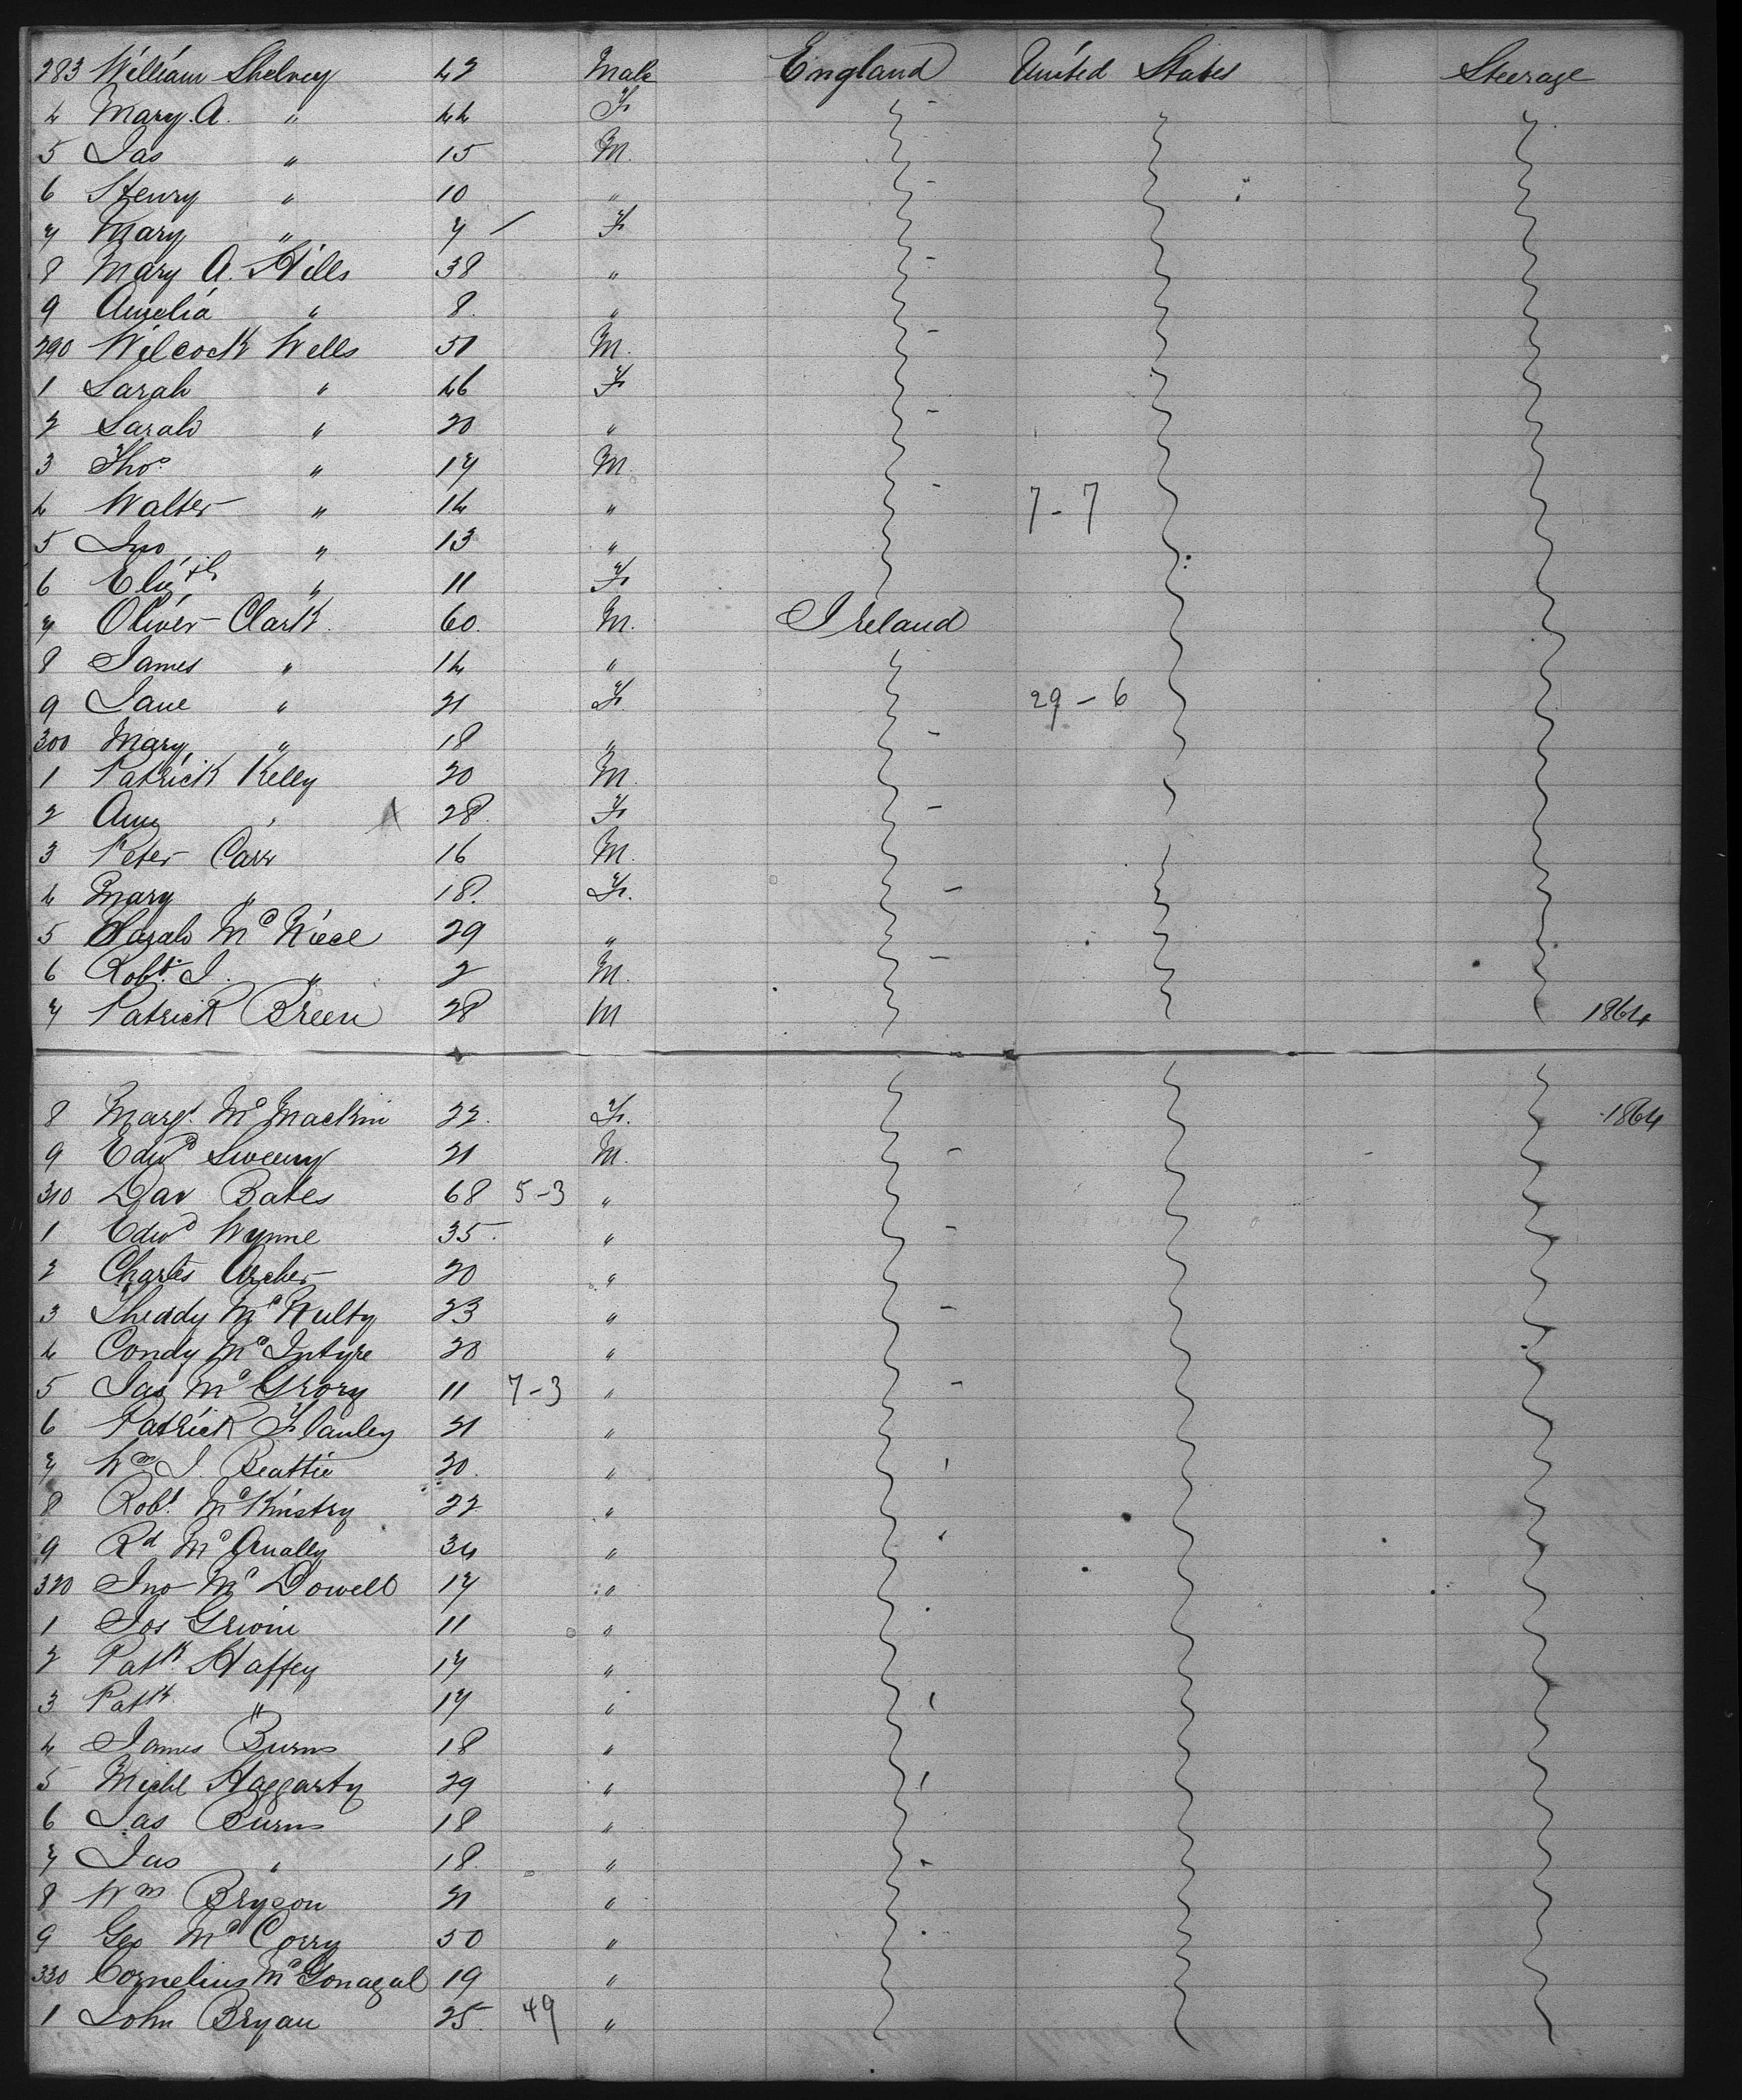 283 William Shelvey 42 Male England United States Steerage
4 Mary. A. " 44 F
5 Jas " 15 M.
6 Henry " 10 "
7 Mary " 7 / F
8 Mary A. Hills 38 "
9 Amelia " 8. "
290 Wilcock Wells 51 M.
1 Sarah " 46 F
2 Sarah " 20 "
3 Thos " 17 M
4 Walter " 14 " 7-7
5 Jno " 13 "
6 Elizth " 11 F
7 Oliver Clark 60. M. Ireland
8 James " 14 "
9 Jane " 21 F 29-6
300 Mary " 18 "
1 Patrick Kelly 20 M
2 Ann " 28. F
3 Peter Carr 16 M.
4 Mary " 18. F.
5 Sarah McNiece 29 "
6 Robt. J. " 2 M.
7 Patrick Breen 28 M 1864
8 Margt. McMackin 22. F. 1864
9 Edwd Sweeny 21 M.
310 Dav Bates 68 5-3 "
1 Edwd Wynne 35. "
2 Charles Archer 20 "
3 Theady McNulty 23 "
4 Condy McIntyre 20 "
5 Jas McGrory 11 7-3 "
6 Patrick Flanley 21 "
7 Wm J. Beattie 30. "
8 Robt. McKinstry 22 "
9 Rd McAnally 34 "
320 Jno McDowell 17 "
1 Jos Grwin 11 "
2 Patk. Haffey 17 "
3 Patk " 17 "
4 James Burns 18 "
5 Michl Haggarty 29 "
6 Jas Burns 18 "
7 Jas " 18. "
8 Wm Bryson 21 "
9 Geo McCorry 50 "
330 Cornelius McGonagal 19 "
1 John Bryan 25. 49 "